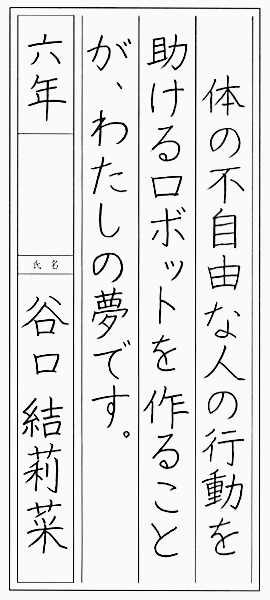 体の不自由な人の行動を
助けるロボットを作ること
が、わたしの夢です。
六年
氏名
谷口結莉菜